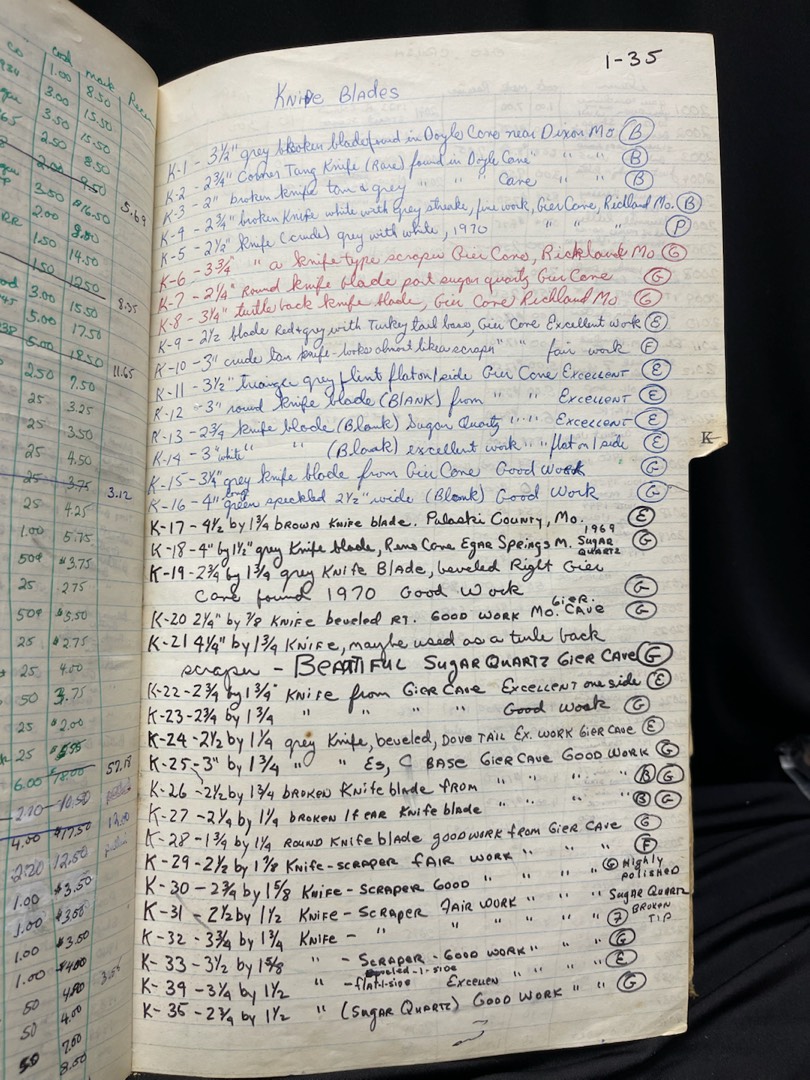 1-35
Knife Blades
K-1 - 3½" grey broken blade found in Doyle Cave near Dixon Mo (B)
K-2 - 2¾" Corner Tang Knife (Rare) found in Doyle Cave " " (B)
K-3 - 2" broken knife tan & grey " " Cave " " (B)
K-4 - 2¾" broken Knife white with grey streaks, fine work, Gier Cave, Richland Mo. (B)
K-5 - 2½" knife (crude) grey with white, 1970 " " " (P)
K-6 - 3¾" " a knife type scraper Gier Cave, Richland Mo (G)
K-7 - 2¼" round knife blade part sugar quartz Gier Cave (G)
K-8 - 3¼" turtle back knife blade, Gier Cave Richland Mo. (G)
K-9 - 2½ blade Red & grey with Turkey tail base, Gier Cave Excellent work (E)
K-10 - 3" crude tan knife - looks almost like a scraper " " fair work (F)
K-11 - 3½" triangle grey flint flat on 1 side Gier Cave EXCELLENT (E)
K-12 - 3" round knife blade (BLANK) from " " EXCELLENT (E)
K-13 - 2¾ knife blade (Blank) Sugar Quartz " " " EXCELLENT (E)
K-14 - 3" "white" " (Blank) excellent work " " flat on 1 side (E)
K-15 - 3¼" grey knife blade from Gier Cave Good Work (G)
K-16 - 4" long green speckled 2½" wide (Blank) Good Work (G)
K-17 - 4½ by 1¾ BROWN KNIFE BLADE. Pulaski County, Mo. (E)
K-18 - 4" by 1½" grey Knife blade, Reno Cave Egar Springs M. 1969 SUGAR QUARTZ (G)
K-19 - 2¾ by 1¾ grey KNIFE BLADE, beveled Right Gier
Cave found 1970 Good Work (G)
K-20 2¼" by ⅞ KNIFE beveled RT. GOOD WORK MO. GIER. CAVE (G)
K-21 4¼" by 1¾ KNIFE, maybe used as a turle back
scraper - BEATIFUL SUGAR QUARTZ GIER CAVE (G)
K-22 - 2¾ by 1¾" KNIFE from GIER CAVE EXCELLENT one side (E)
K-23 - 2¾ by 1¾ " " " " Good Work (G)
K-24 - 2½ by 1¼ grey Knife, beveled, DOVE TAIL EX. WORK GIER CAVE (E)
K-25 - 3" by 1¾ " " Es, C BASE GIER CAVE GOOD WORK (G)
K-26 - 2½ by 1¾ BROKEN Knife blade from " " " (B) (G)
K-27 - 2¼ by 1¼ BROKEN 1 EAR Knife blade " " " (B) (G)
K-28 - 1¾ by 1¼ ROUND Knife blade good work from GIER CAVE (G)
K-29 - 2½ by 1⅜ Knife-scraper FAIR WORK " " " (F)
K-30 - 2¾ by 1⅝ KNIFE - SCRAPER GOOD " " " " (G) Highly POLISHED
K-31 - 2½ by 1½ KNIFE - SCRAPER FAIR WORK " " " " SUGAR QUARTZ
K-32 - 3¾ by 1¾ KNIFE - " " " " " " (F) BROKEN TIP
K-33 - 3½ by 1⅝ " - SCRAPER - GOOD WORK " " " (G)
K-39 - 3¼ by 1½ " - beveled-1-side flat-1-side EXCELLEN " " " " (E)
K-35 - 2¾ by 1½ " (SUGAR QUARTZ) GOOD WORK " " (G)
K
cost mark
1.00 8.50
3.00 15.50
3.50 15.50
2.50 8.50
2.00 9.50
3.50 $16.50 5.69
2.00
1.50 14.50
1.50 12.50
3.00 15.50 8.35
5.00 17.50
5.00 18.50
2.50 7.50 11.65
25 3.25
25 3.50
25 4.50
25 3.75 3.12
25 4.25
1.00 5.75
50¢ $3.75
25 275
50¢ $5.50
25 $2.75
25 4.00
50 3.75
25 $2.00
25
6.00 18.00 57.18
2.20 10.50
4.00 $17.50
2.20 12.50
1.00 $3.50
1.00 $3.50
1.00 $3.50
1.00 $4.00
50 4.00
50 4.00
50 7.00
8.50